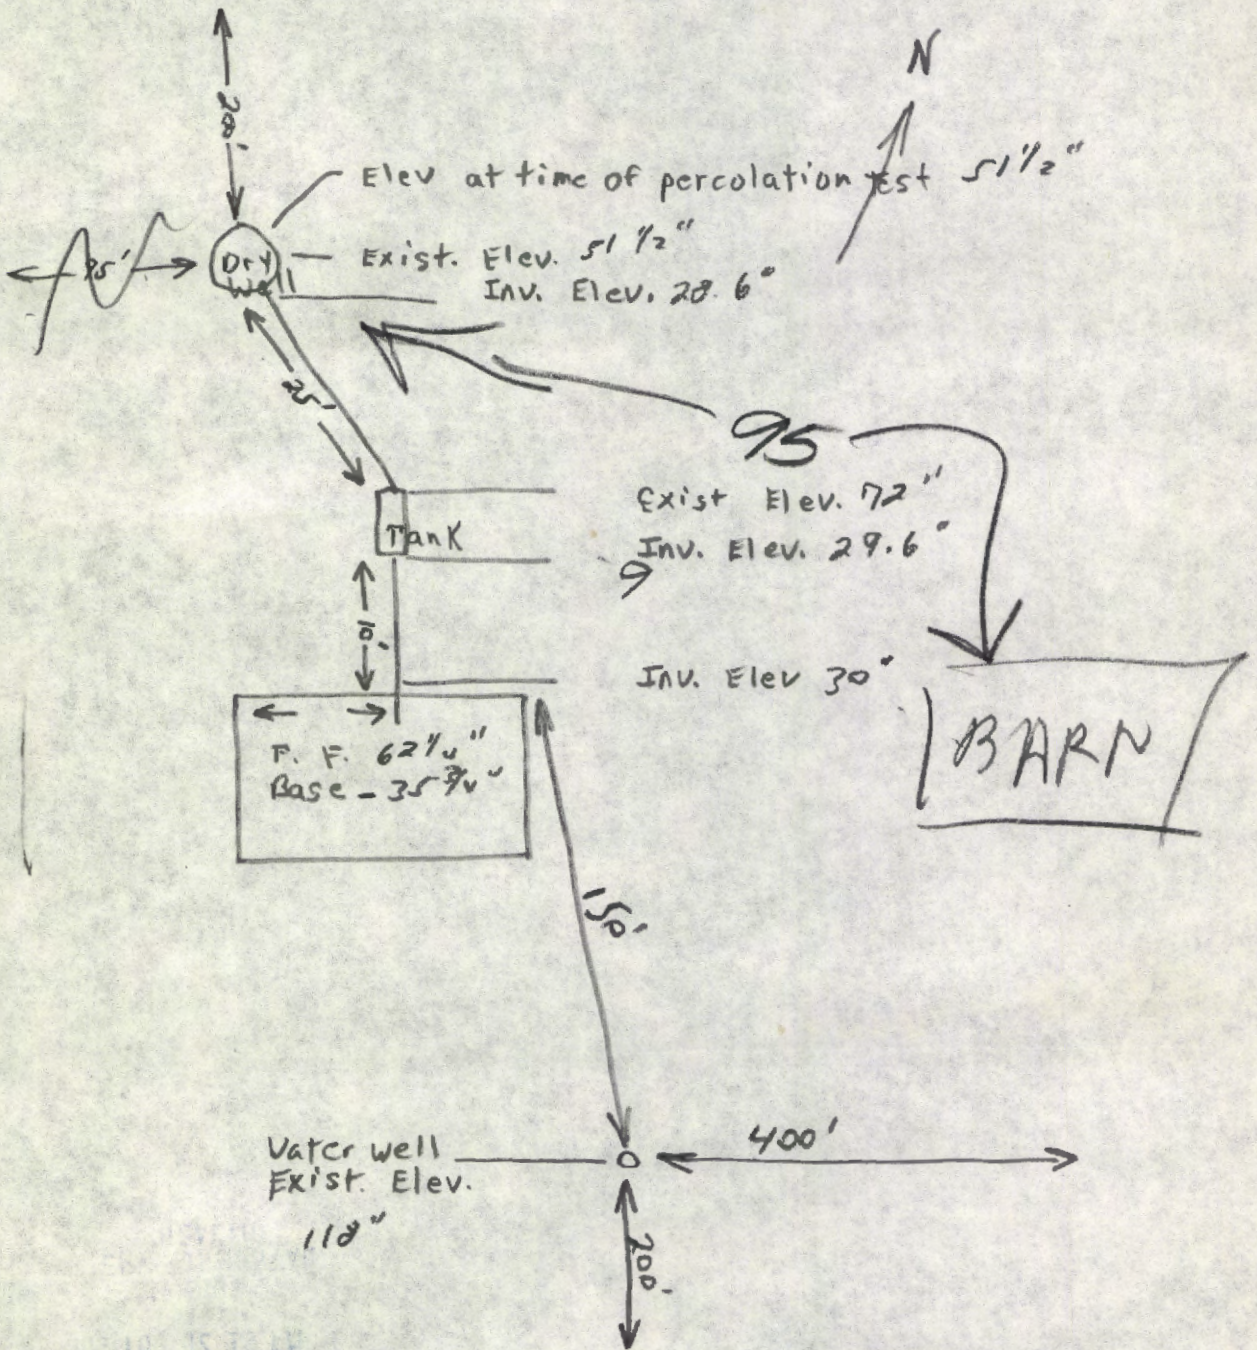 N
20'
Elev at time of percolation test 51 1/2"
95'
Dry Well
Exist. Elev. 51 1/2"
Inv. Elev. 28.6"
25'
95
Exist Elev. 72"
Tank
Inv. Elev. 29.6"
9
10'
Inv. Elev 30"
F. F. 62 1/4"
Base - 35 3/4"
BARN
150'
Water well
Exist. Elev.
118"
400'
200'